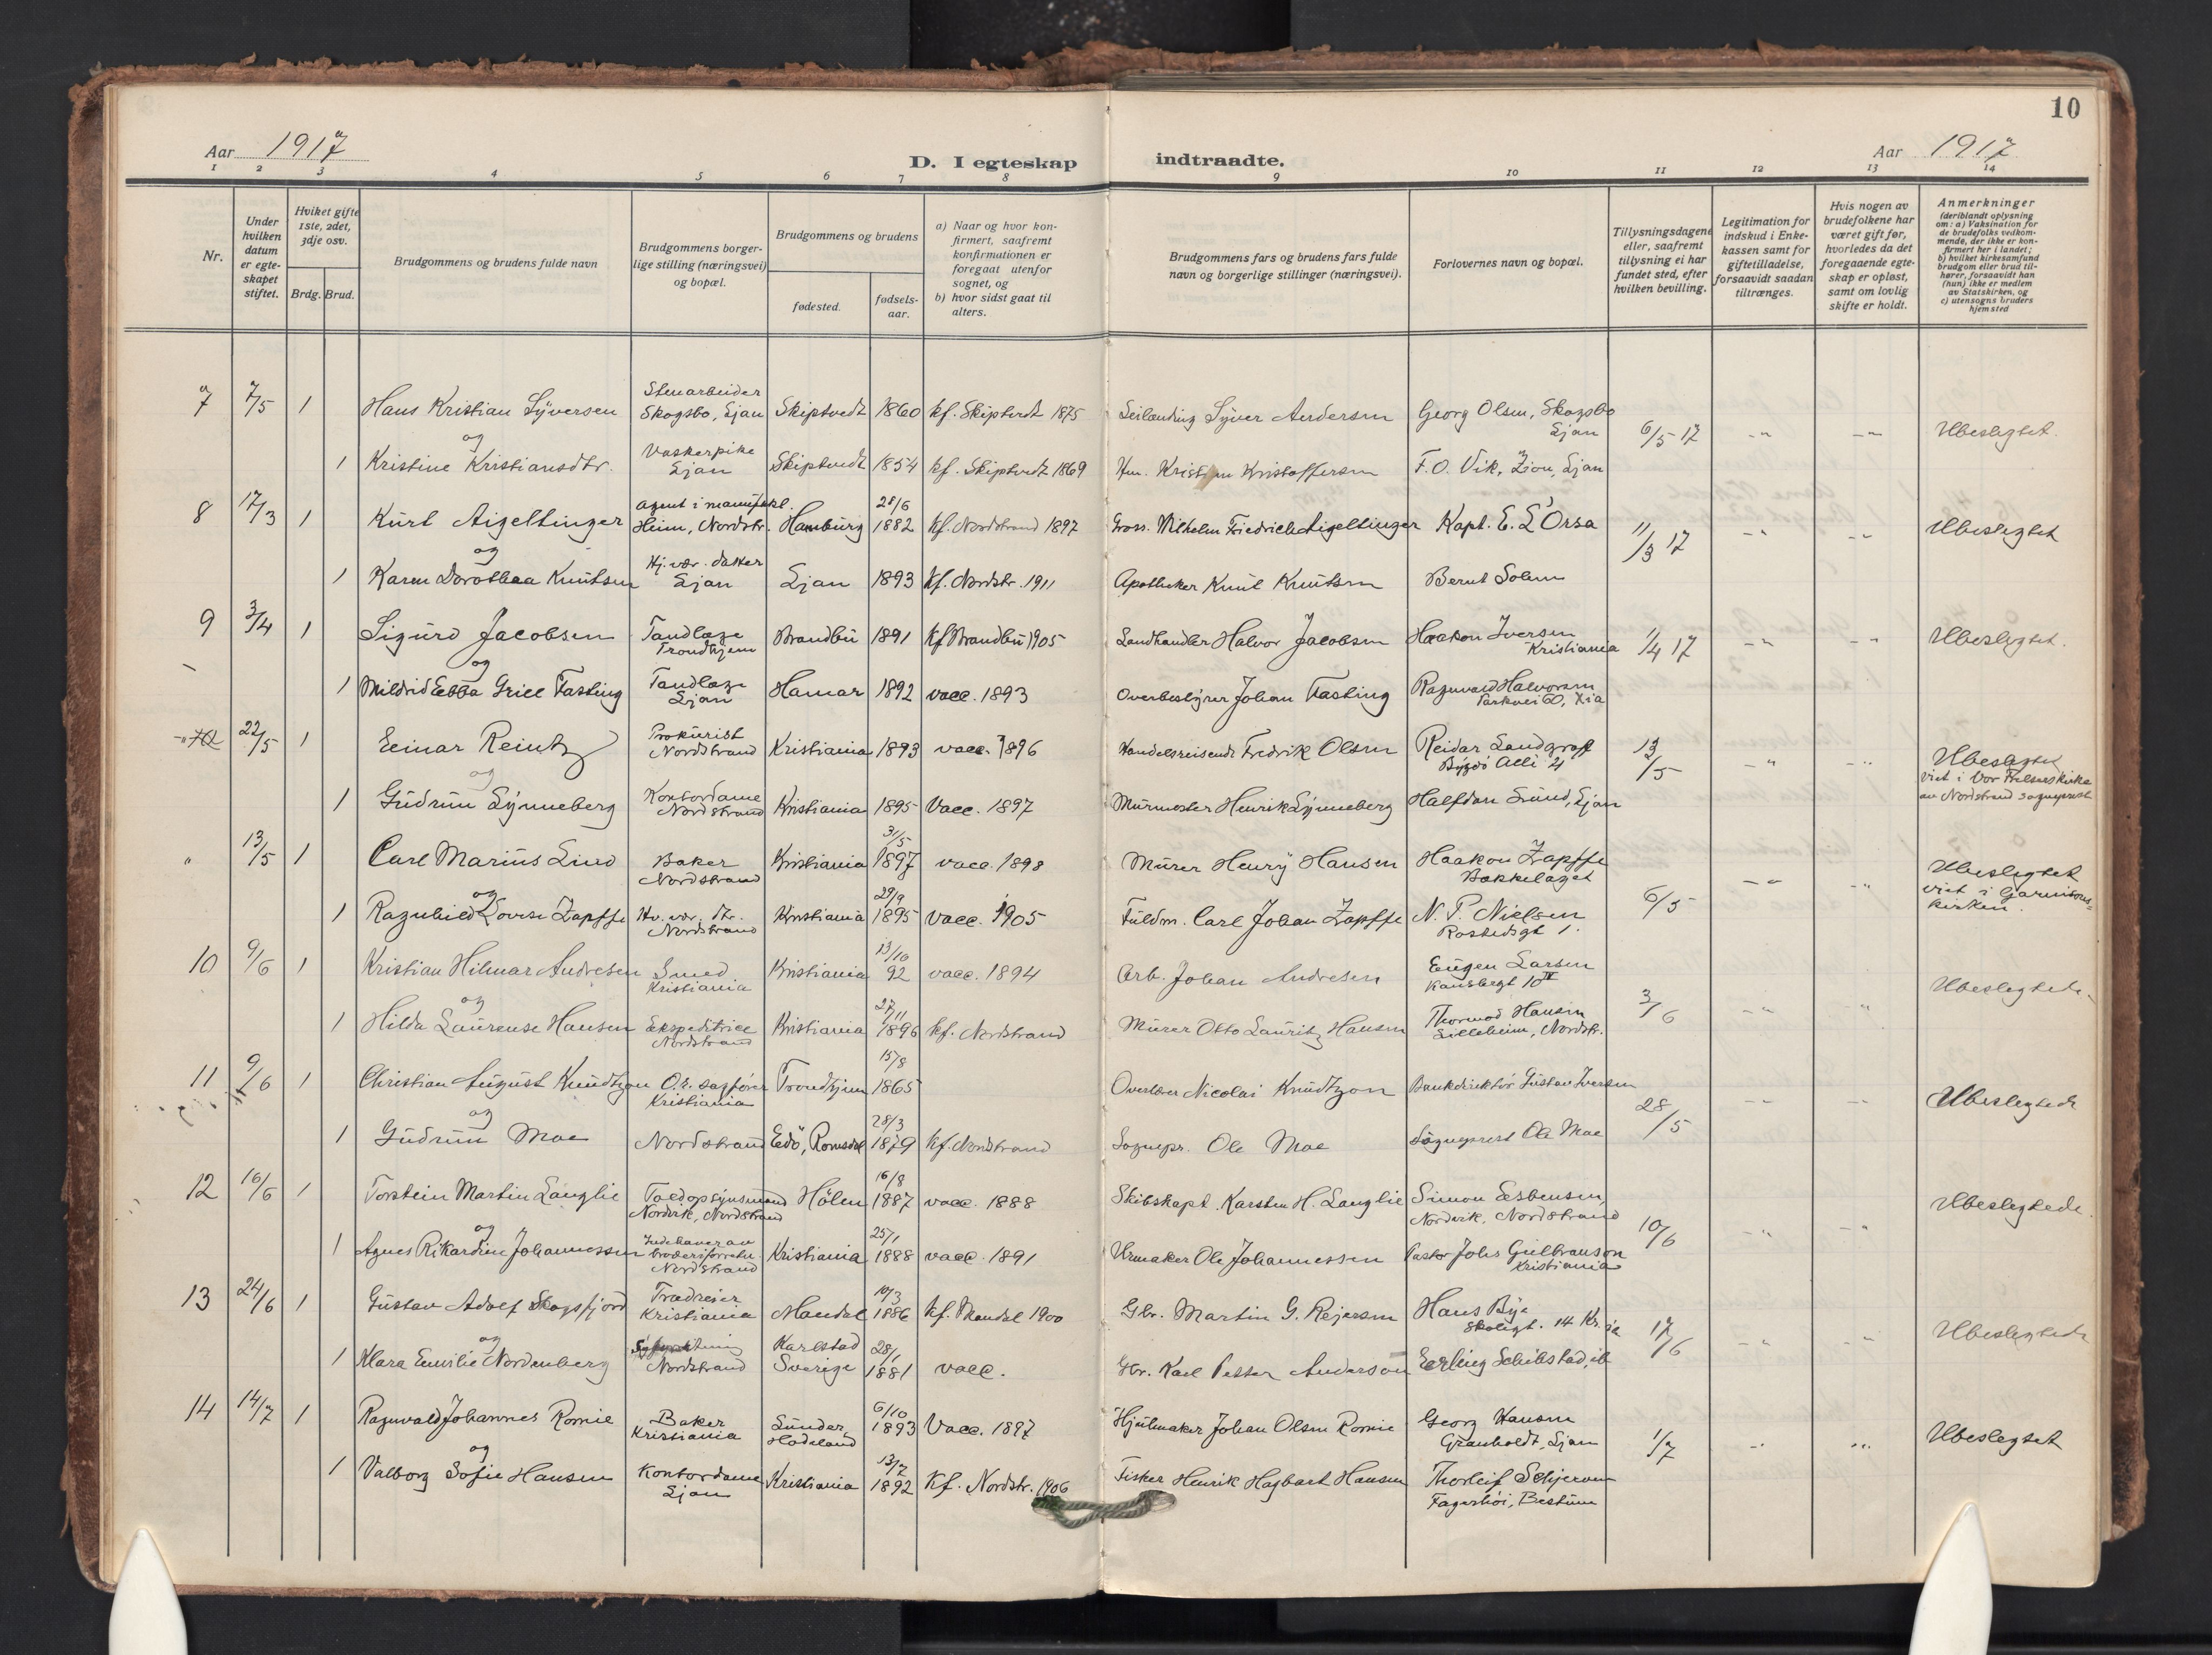 10
Aar 1917
D. I egteskap indtraadte.
Aar 1917
1 2 3 4 5 6 7 8 9 10 11 12 13 14
Nr.
Under hvilken datum er egteskapet stiftet.
Hviket gifte 1ste, 2det, 3dje osv.
Brdg. Brud.
Brudgommens og brudens fulde navn
Brudgommens borgerlige stilling (næringsvei) og bopæl.
Brudgommens og brudens
fødested.
fødselsaar.
a) Naar og hvor konfirmert, saafremt konfirmationen er foregaat utenfor sognet, og
b) hvor sidst gaat til alters.
Brudgommens fars og brudens fars fulde navn og borgerlige stillinger (næringsvei).
Forlovernes navn og bopæl.
Tillysningsdagene eller, saafremt tillysning ei har fundet sted, efter hvilken bevilling.
Legitimation for indskud i Enkekassen samt for giftetilladelse, forsaavidt saadan tiltrænges.
Hvis nogen av brudefolkene har været gift før, hvorledes da det foregaaende egteskap er opløst, samt om lovlig skifte er holdt.
Anmerkninger (deriblandt oplysning om: a) Vaksination for de brudefolks vedkommende, der ikke er konfirmert her i landet; b) hvilket kirkesamfund brudgom eller brud tilhører, forsaavidt han (hun) ikke er medlem av Statskirken, og c) utensogns bruders hjemsted
7 7/5 1 Hans Kristian Syversen Stenarbeider Skogsbo, Ljan Skiptvedt 1860 kf. Skiptvedt 1875 Leilænding Syver Andersen Georg Olsen, Skogsbo Ljan 6/5 17 -"- -"- Ubeslegtet.
og
1 Kristine Kristiansdtr. Vaskerpike Ljan Skiptvedt 1854 kf. Skiptvedt 1869 Hm. Kristian Kristoffersen F. O. Vik, Zion, Ljan
8 17/3 1 Kurt Aigeltinger Agent i manufakt. Heim, Nordstr. Hamburg 28/6 1882 kf. Nordstrand 1897 Gross. Wilhelm Friedrich Aigeltinger Kapt. E. L'Orsa 11/3 17 -"- -"- Ubeslegtet
og
1 Karen Dorothea Knutsen Hj. vær. datter Ljan Ljan 1893 kf. Nordstr. 1911 Apotheker Knut Knutsen Bernt Solem
9 3/4 1 Sigurd Jacobsen Tandlæge Trondhjem Brandbu 1891 kf Brandbu 1905 Landhandler Halvor Jacobsen Haakon Iversen Kristiania 1/4 17 -"- -"- Ubeslegtet.
og
1 Mildrid Ebba Griee Fasting Tandlæge Ljan Hamar 1892 vacc. 1893 Overbestyrer Johan Fasting Ragnvald Halvorsen Parkvei 60, Kia
-"- 10 22/5 1 Einar Reintz Prokurist Nordstrand Kristiania 1893 vacc. 1896 Handelsreisende Fredrik Olsen Reidar Landgraff Bygdö Alle 4 13/5 -"- -"- Ubeslegtet, viet i Vor Frelsers kirke av Nordstrand sogneprest
og
1 Gudrun Lynneberg Kontordame Nordstrand Kristiania 1895 Vacc. 1897 Murmester Henrik Lynneberg Halfdan Lund, Ljan
" 13/5 1 Carl Marius Lind Baker Nordstrand Kristiania 31/5 1897 vacc. 1898 Murer Henry Hansen Haakon Zapffe Bækkelaget 6/5 -"- -"- Ubeslegtet viet i Garnisonskirken.
og
1 Ragnhild Lovise Zapffe Hv. vær. dtr. Nordstrand Kristiania 29/9 1895 Vacc. 1905 Fuldm. Carl Johan Zapffe N. P. Nielsen Rostedsgt 1.
10 9/6 1 Kristian Hilmar Andresen Smed Kristiania Kristiania 13/10 92 vacc. 1894 Arb. Johan Andresen Eugen Larsen 10 IV 3/6 -"- -"- Ubeslegtede
og
1 Hilda Laurense Hansen Ekspeditrice Nordstrand Kristiania 27/11 1896 kf. Nordstrand Murer Otto Lauritz Hansen Thormod Hansen Lilleheim, Nordstr.
11 9/6 1 Christian August Knudtzon O.r. sagfører Kristiania Trondhjem 15/8 1865 Overlærer Nicolai Knudtzon Bankdirektör Gustav Iversen 28/5 -"- -"- Ubeslegtede
og
1 Gudrun Moe Nordstrand Edö, Romsdal 28/3 1879 kf. Nordstrand Sognepr. Ole Moe Sogneprest Ole Moe
12 16/6 1 Torstein Martin Langlie Toldopsynsmand Nordvik, Nordstrand Hölen 16/8 1887 vacc. 1888 Skibskapt. Karsten H. Langlie Simon Esbensen, Nordvik, Nordstrand 10/6 -"- -"- Ubeslegtede.
og
1 Agnes Rikardine Johannessen Indehaver av broderiforretn. Nordstrand Kristiania 25/1 1888 vacc. 1891 Urmaker Ole Johannessen Pastor Johs Gulbranson Kristiania
13 24/6 1 Gustav Adolf Skogsfjord Trædreier Kristiania Mandal 10/3 1886 kf. Mandal 1900 Gbr. Martin G. Rejersen Hans Bye Skoligt. 14 Kr.ia 17/6 -"- -"- Ubeslegtede
og
1 Klara Emilie Nordenberg Nordstrand Karlstad Sverige 28/1 1881 vacc. Gbr. Karl Petter Anderson Erling Schibstad, ib
14 14/7 1 Ragnvald Johannes Romie Baker Kristiania Lunder, Hadeland 6/10 1893 Vacc. 1897 Hjulmaker Johan Olsen Romie Georg Hansen Granholdt, Ljan 1/7 -"- -"- Ubeslegtet
og
1 Valborg Sofie Hansen Kontordame Ljan Kristiania 13/7 1892 Kf. Nordstr. 1906 Fisker Henrik Hagbart Hansen Thorleif Schjerven Fagerhöi, Bestum